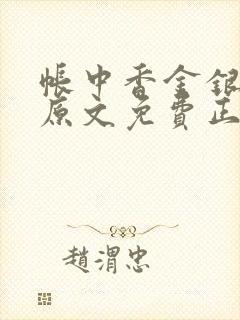 帳中香金銀
原文免費正
趙渭忠